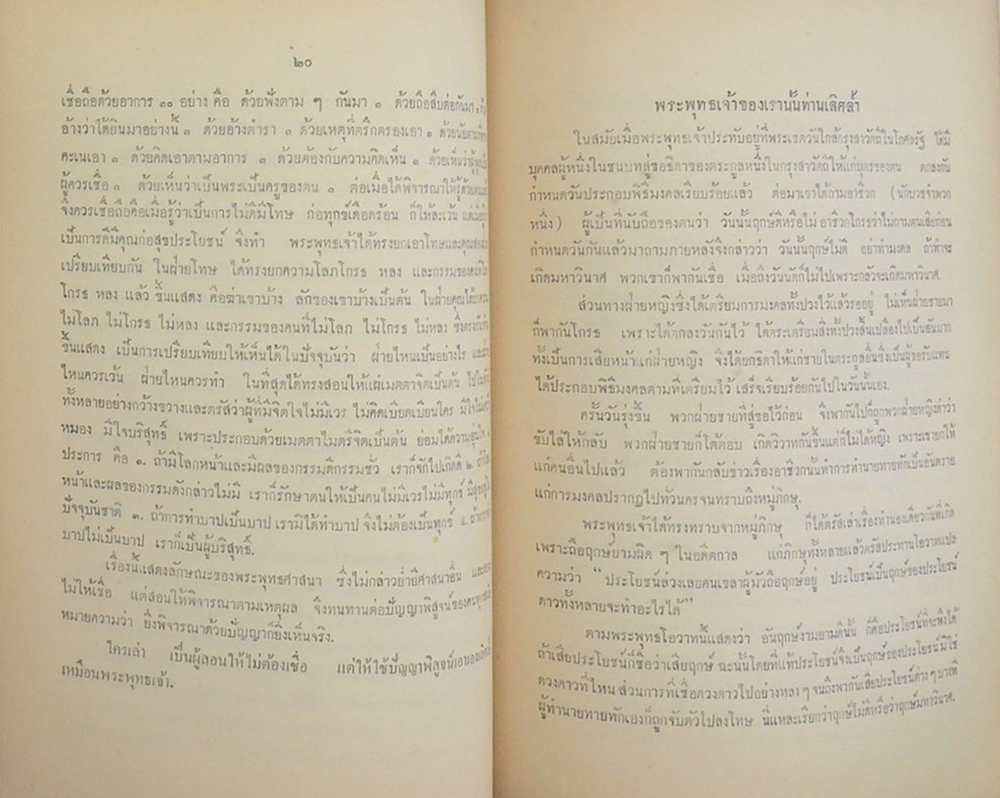 ๒๐
เชื่อถือด้วยอาการ ๑๐ อย่าง คือ ด้วยฟังตาม ๆ กันมา ๑ ด้วยถือสืบต่อกันมา ๑
อ้างว่าได้ยินมาอย่างนี้ ๑ ด้วยอ้างตำรา ๑ ด้วยเหตุที่ตรึกตรองเอา ๑ ด้วยนัยตามที่
คะเนเอา ๑ ด้วยคิดเอาตามอาการ ๑ ด้วยต้องกับความคิดเห็น ๑ ด้วยเห็นว่าผู้พูดเป็น
ผู้ควรเชื่อ ๑ ด้วยเห็นว่าเป็นพระเป็นครูของตน ๑ ต่อเมื่อได้พิจารณาให้รู้ด้วยตนเอง
จึงควรเชื่อถือคือเมื่อรู้ว่าเป็นการไม่ดีมีโทษ ก่อทุกข์เดือดร้อน ก็ให้ละเว้น
เป็นการดีมีคุณก่อสุขประโยชน์ จึงทำ พระพุทธเจ้าได้ทรงยกเอาโทษและคุณ
เปรียบเทียบกัน ในฝ่ายโทษ ได้ทรงยกความโลภโกรธ หลง และกรรมของคนที่
โกรธ หลง แล้ว ขึ้นแสดง คือฆ่าเขาบ้าง ลักของเขาบ้างเป็นต้น ในฝ่ายคุณได้ยกความ
ไม่โลภ ไม่โกรธ ไม่หลง และกรรมของคนที่ไม่โลภ ไม่โกรธ ไม่หลง
ขึ้นแสดง เป็นการเปรียบเทียบให้เห็นได้ในปัจจุบันว่า ฝ่ายไหนเป็นอย่างไร
ไหนควรเว้น ฝ่ายไหนควรทำ ในที่สุดได้ทรงสอนให้แผ่เมตตาจิตเป็นต้น
ทั้งหลายอย่างกว้างขวางและตรัสว่าผู้ที่มีจิตใจไม่มีเวร ไม่คิดเบียดเบียนใคร มีใจไม่เศร้า
หมอง มีใจบริสุทธิ์ เพราะประกอบด้วยเมตตาไมตรีจิตเป็นต้น ย่อมได้ความอุ่นใจ
ประการ คือ ๑. ถ้ามีโลกหน้าและมีผลของกรรมดีกรรมชั่ว เราก็จักไปเกิดดี ๒.
หน้าและผลของกรรมดังกล่าวไม่มี เราก็รักษาตนให้เป็นคนไม่มีเวรไม่มีทุกข์ มีสุขอยู่ใน
ปัจจุบันชาติ ๓. ถ้าการทำบาปเป็นบาป เรามิได้ทำบาป จึงไม่ต้องเป็นทุกข์ ๔.
บาปไม่เป็นบาป เราก็เป็นผู้บริสุทธิ์.
เรื่องนี้แสดงลักษณะของพระพุทธศาสนา ซึ่งไม่กล่าวย่ำยีศาสนาอื่น
ไม่ให้เชื่อ แต่สอนให้พิจารณาตามเหตุผล จึงทนทานต่อปัญญาพิสูจน์ของคนทุกสมัย
หมายความว่า ยิ่งพิจารณาด้วยปัญญาก็ยิ่งเห็นจริง.
ใครเล่า เป็นผู้สอนให้ไม่ต้องเชื่อ แต่ให้ใช้ปัญญาพิสูจน์เอาของ
เหมือนพระพุทธเจ้า.
พระพุทธเจ้าของเรานั้นท่านเลิศล้ำ
ในสมัยเมื่อพระพุทธเจ้าประทับอยู่ที่พระเชตวันใกล้กรุงสาวัตถีในโกศลรัฐ ได้มี
บุคคลผู้หนึ่งในชนบทสู่ขอธิดาของตระกูลหนึ่งในกรุงสาวัตถีให้แก่บุตรของตน ตกลงกัน
กำหนดวันประกอบพิธีมงคลเรียบร้อยแล้ว ต่อมาเขาได้ถามอาชีวก (นักบวชจำพวก
หนึ่ง) ผู้เป็นที่นับถือของตนว่า วันนั้นฤกษ์ดีหรือไม่ อาชีวกโกรธว่าไม่ถามตนเสียก่อน
กำหนดวันกันแล้วมาถามภายหลังจึงกล่าวว่า วันนั้นฤกษ์ไม่ดี อย่าทำมงคล ถ้าทำจะ
เกิดมหาวินาศ พวกเขาก็พากันเชื่อ เมื่อถึงวันนัดก็ไม่ไปเพราะกลัวจะเกิดมหาวินาศ.
ส่วนทางฝ่ายหญิงซึ่งได้เตรียมการมงคลทั้งปวงไว้แล้วรออยู่ ไม่เห็นฝ่ายชายมา
ก็พากันโกรธ เพราะได้ตกลงวันกันไว้ ได้ตระเตรียมสิ่งทั้งปวงสิ้นเปลืองไปเป็นอันมาก
ทั้งเป็นการเสียหน้าแก่ฝ่ายหญิง จึงได้ยกธิดาให้แก่ชายในตระกูลอื่นซึ่งเป็นผู้ขอรับแทน
ได้ประกอบพิธีมงคลตามที่เตรียมไว้ เสร็จเรียบร้อยกันไปในวันนั้นเอง.
ครั้นวันรุ่งขึ้น พวกฝ่ายชายที่สู่ขอไว้ก่อน จึงพากันไปก็ถูกพวกฝ่ายหญิงด่าว่า
ขับไล่ให้กลับ พวกฝ่ายชายก็โต้ตอบ เกิดวิวาทกันขึ้นแต่ก็ไม่ได้หญิง เพราะเขายกให้
แก่คนอื่นไปแล้ว ต้องพากันกลับข่าวเรื่องอาชีวกนั้นทำการทำนายทายทักเป็นอันตราย
แก่การมงคลปรากฏไปทั่วนครจนทราบถึงหมู่ภิกษุ.
พระพุทธเจ้าได้ทรงทราบจากหมู่ภิกษุ ก็ได้ตรัสเล่าเรื่องทำนองเดียวกันที่เกิด
เพราะถือฤกษ์ยามผิด ๆ ในอดีตกาล แก่ภิกษุทั้งหลายแล้วตรัสประทานโอวาทแปล
ความว่า “ประโยชน์ล่วงเลยคนเขลาผู้มัวถือฤกษ์อยู่ ประโยชน์เป็นฤกษ์ของประโยชน์
ดาวทั้งหลายจะทำอะไรได้”
ตามพระพุทธโอวาทนี้แสดงว่า อันฤกษ์งามยามดีนั้น ก็คือประโยชน์ที่จะพึงได้
ถ้าเสียประโยชน์ก็ชื่อว่าเสียฤกษ์ ฉะนั้นโดยที่แท้ประโยชน์จึงเป็นฤกษ์ของประโยชน์ มิใช่
ดวงดาวที่ไหน ส่วนการที่เชื่อดวงดาวไปอย่างหลง ๆ จนถึงพากันเสียประโยชน์ต่าง ๆ บางที
ผู้ทำนายทายทักเองก็ถูกจับตัวไปลงโทษ นี่แหละเรียกว่าฤกษ์ไม่ดีหรือว่าฤกษ์มหาวินาศ.